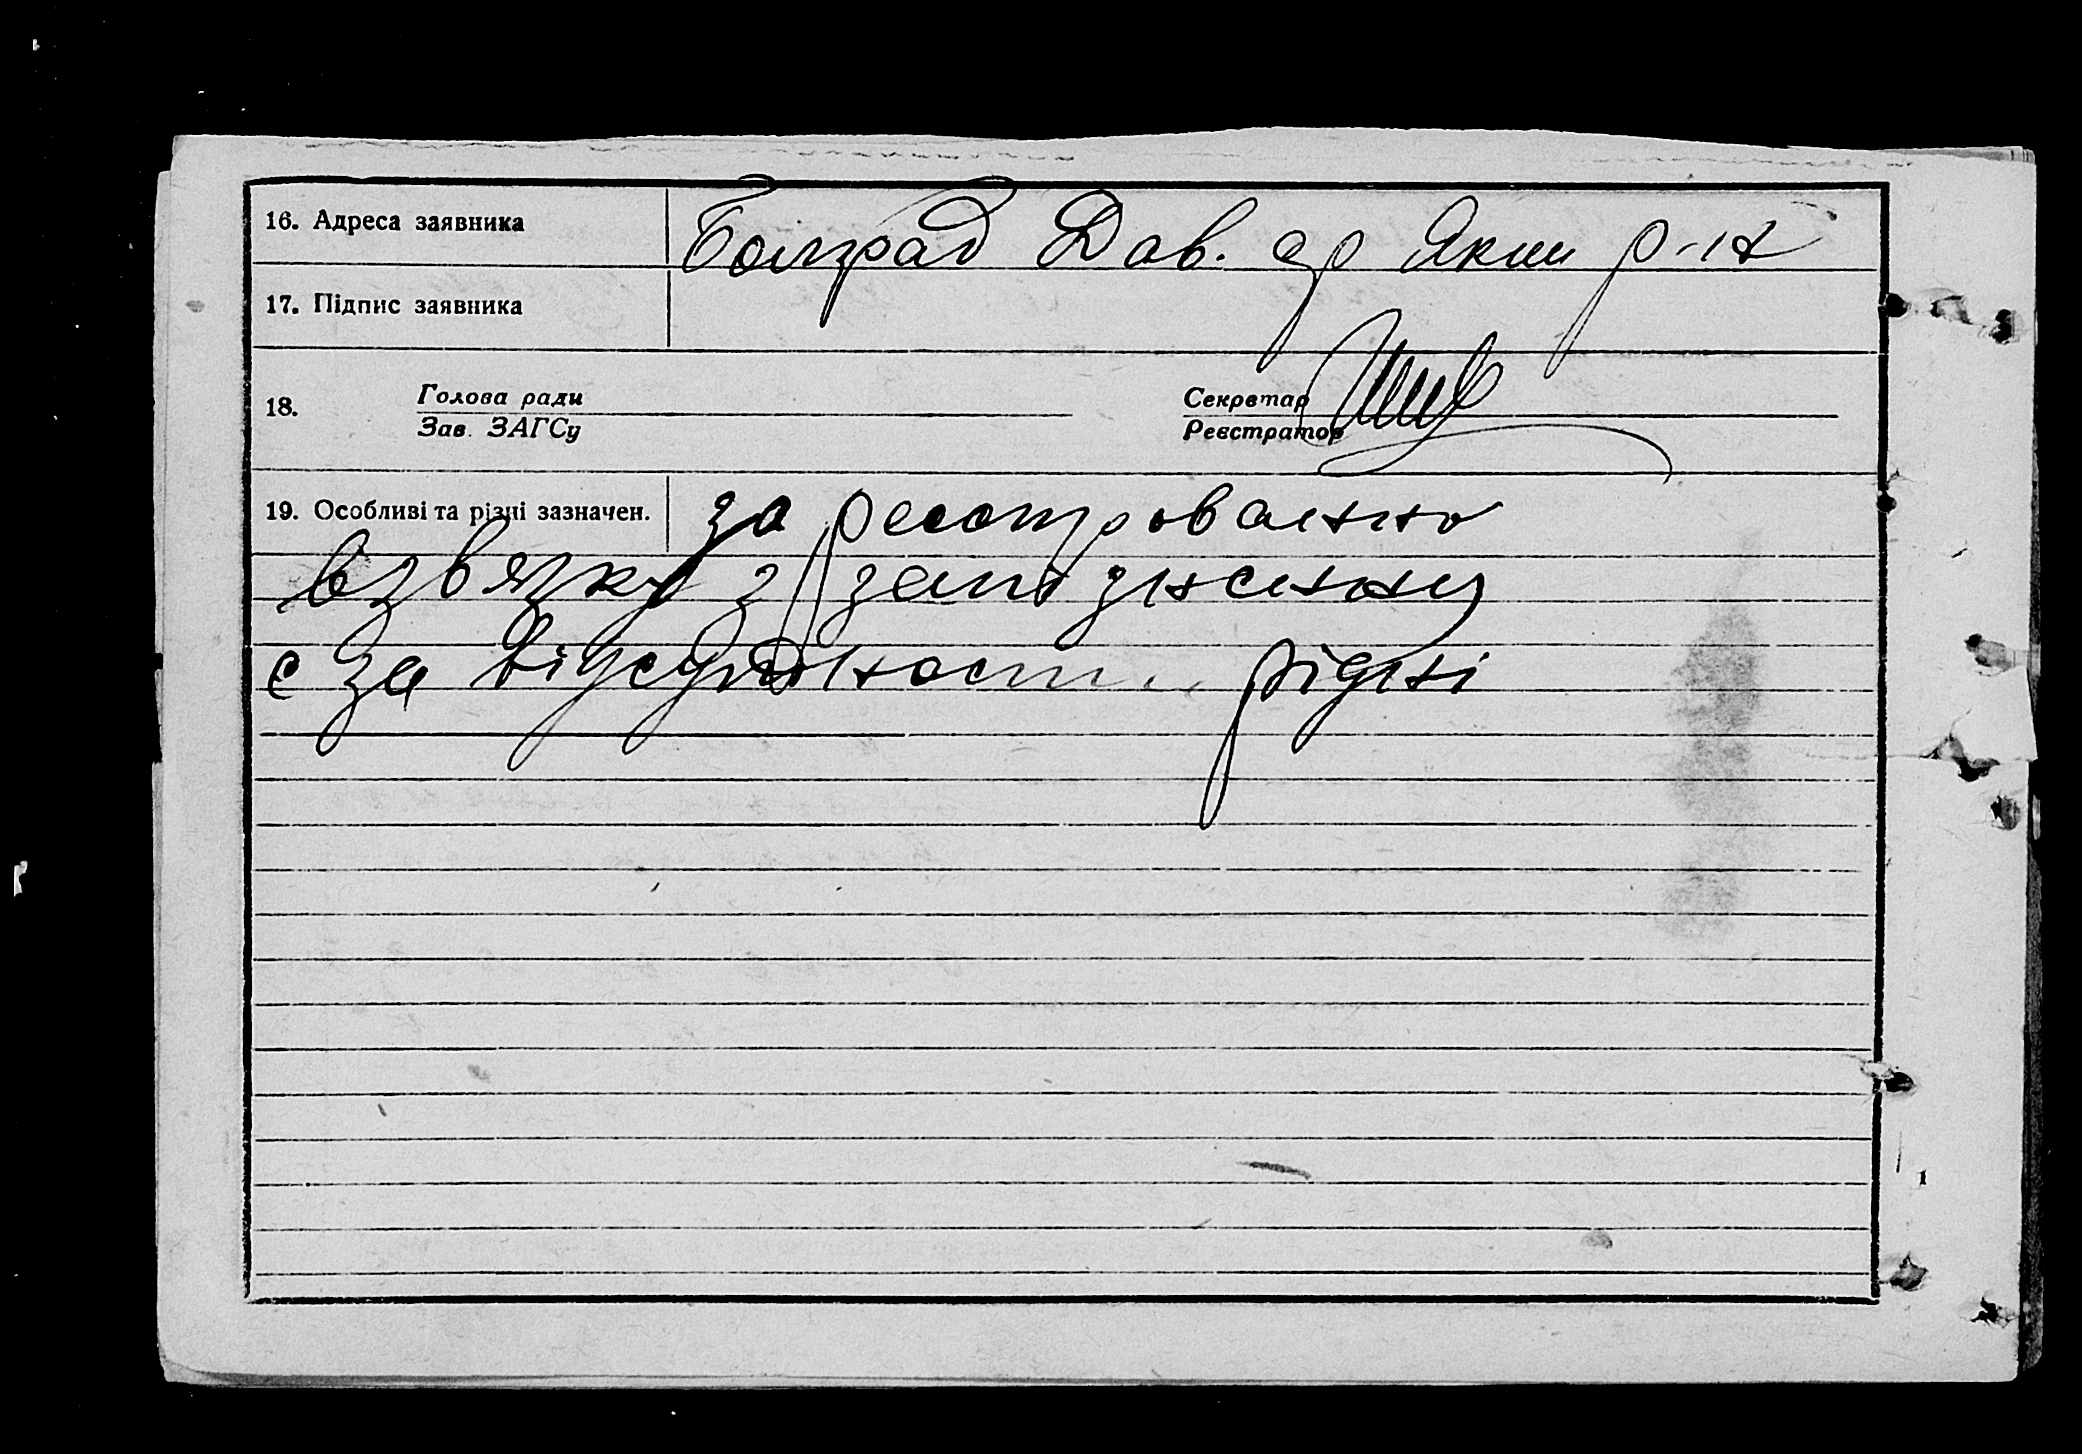 16. Адреса заявника Болград Дав. др Яким р-н
17. Підпис заявника
18. Голова ради Секретар
Зав. ЗАГСу Реєстратор
19. Особливі та різні зазначен. за реєстровально
в звязку з запізненням
є за відсутности рідні